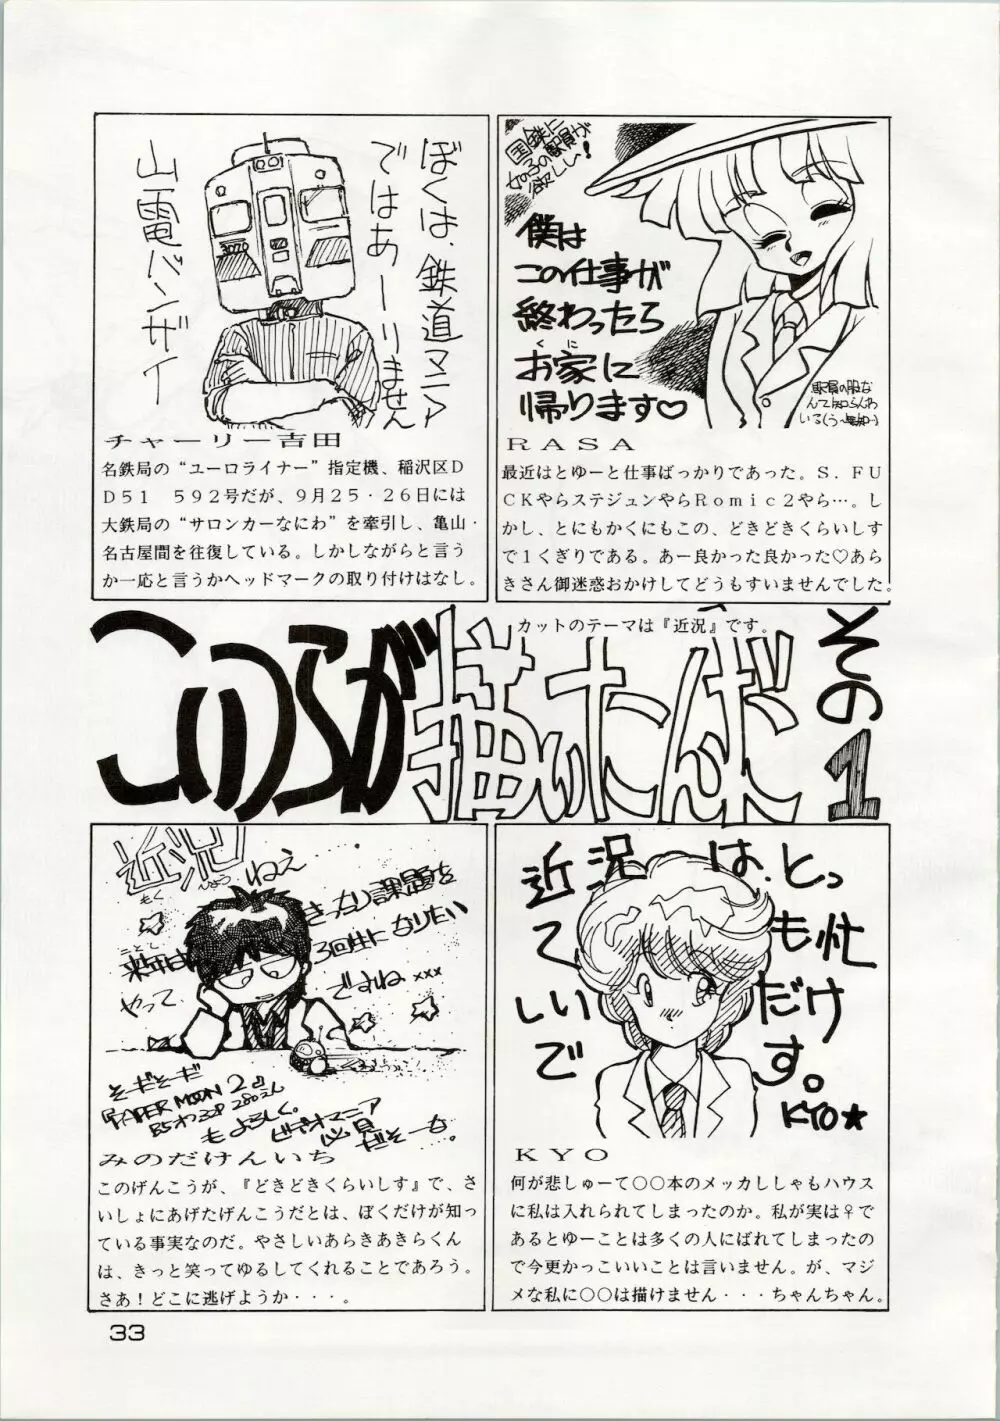 ぼくは、鉄道マニア
ではあーりません
山電バンザイ
3020
チャーリー吉田
名鉄局の“ユーロライナー”指定機、稲沢区Ｄ
Ｄ５１　５９２号だが、９月２５・２６日には
大鉄局の“サロンカーなにわ”を牽引し、亀山・
名古屋間を往復している。しかしながらと言う
か一応と言うかヘッドマークの取り付けはなし。
国鉄に
女の子の駅員が
欲しい！
僕は
この仕事が
終わったら
お家に
くに
帰ります♡
駅員の服な
んて知らんわ
ＲＡＳＡ
最近はとゆーと仕事ばっかりであった。Ｓ．ＦＵ
ＣＫやらステジュンやらＲｏｍｉｃ２やら…。し
かし、とにもかくにもこの、どきどきくらいしす
で１くぎりである。あー良かった良かった♡あら
きさん御迷惑おかけしてどうもすいませんでした。
カットのテーマは『近況』です。
このいらが描いたんだ
その1
近況
ねえ
もく
ひょう
ことし
来年は
きっかり課題を
やって
3回生になりたい
ですね×××
そだそだ
PAPER MOON 2♪
B5オフ32P 280えん
もよろしく。
ビデオマニア
必見
だそーな。
みのだけんいち
このげんこうが、『どきどきくらいしす』で、さ
いしょにあげたげんこうだとは、ぼくだけが知っ
ている事実なのだ。やさしいあらきあきらくん
は、きっと笑ってゆるしてくれることであろう。
さあ！どこに逃げようか・・・。
近況は、とっ
ても忙
しいだけ
です。
KYO★
ＫＹＯ
何が悲しゅーて○○本のメッカししゃもハウス
に私は入れられてしまったのか。私が実は♀で
あるとゆーことは多くの人にばれてしまったの
で今更かっこいいことは言いません。が、マジ
メな私に○○は描けません・・・ちゃんちゃん。
33